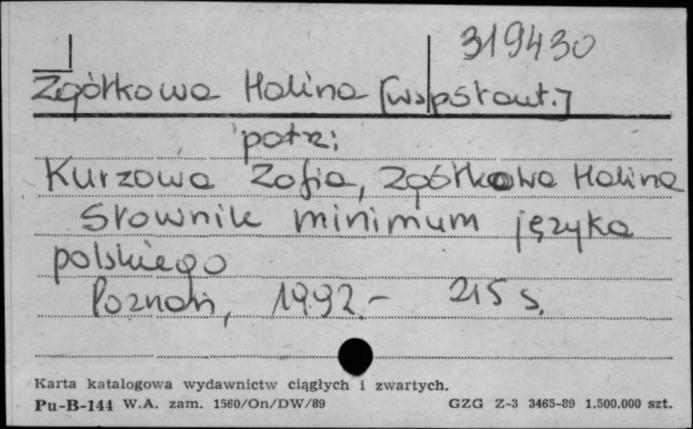 319430
Zgółkowa Halina [współaut.]
patrz:
Kurzowa Zofia, Zgółkowa Halina
Słownik minimum języka
polskiego
Poznań, 1992.- 215 s.
Karta katalogowa wydawnictw ciągłych i zwartych.
Pu-B-144 W.A. zam. 1560/On/DW/89 GZG Z-3 3465-89 1.500.000 szt.